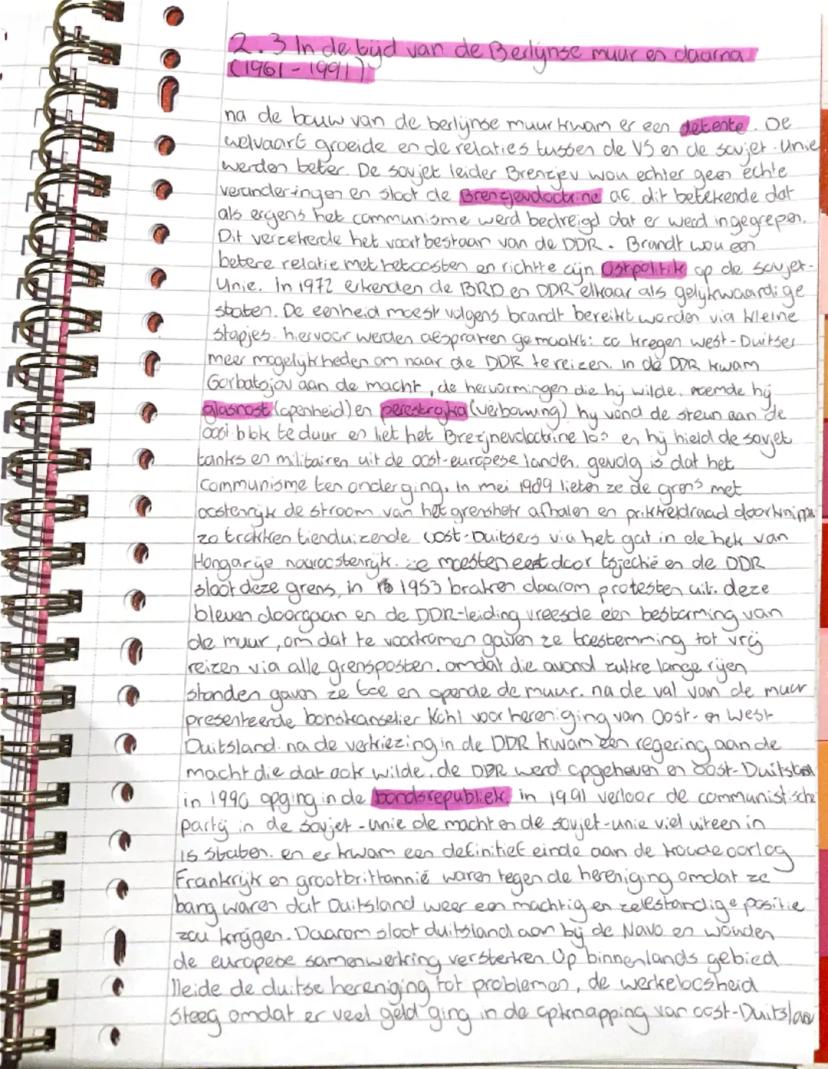 2.3 In de tijd van de Berlijnse muur en daarna
(1961 - 1991)
na de bouw van de berlijnse muur kwam er een detente. De
welvaart groeide en de relaties tussen de VS en de sovjet-unie
werden beter. De sovjet leider Brenzjev wou echter geen echte
veranderingen en sloot de Brenzjevdoctrine af. dit betekende dat
als ergens het communisme werd bedreigd dat er werd ingegrepen.
Dit verzekerde het voortbestaan van de DDR. Brandt wou een
betere relatie met het oosten en richtte zijn Ostpolitik op de sovjet-
unie. In 1972 erkenden de BRD en DDR elkaar als gelijkwaardige
staten. De eenheid moest volgens brandt bereikt worden via kleine
stapjes. hiervoor werden afspraken gemaakt: zo kregen west-Duitser
meer mogelijkheden om naar de DDR te reizen. in de DDR kwam
Gorbatsjov aan de macht, de hervormingen die hij wilde. noemde hij
glasnost (openheid) en perestrojka (verbouwing) hij vond de steun aan de
oost blok te duur en liet het Brezjnevdoctrine los en hij hield de sovjet
tanks en militairen uit de oost-europese landen. gevolg is dat het
communisme ten onderging. In mei 1989 lieten ze de grens met
oostenrijk de stroom van het grenshek afhalen en prikkeldraad doorknippe
zo trokken tienduizende oost-Duitsers via het gat in de hek van
Hongarije naar oostenrijk. ze moesten eest door tsjechië en de DDR
sloot deze grens, in 1953 braken daarom protesten uit. deze
bleven doorgaan en de DDR-leiding vreesde een bestorming van
de muur, om dat te voorkomen gaven ze toestemming tot vrij
reizen via alle grensposten. omdat die avond zulke lange rijen
stonden gaven ze toe en opende de muur. na de val van de muur
presenteerde bonskanselier Kohl voor hereniging van Oost- en West
Duitsland. na de verkiezing in de DDR kwam een regering aan de
macht die dat ook wilde. de DDR werd opgeheven en oost-Duitsland
in 1990 opging in de bondsrepubliek. in 1991 verloor de communistische
partij in de sovjet-unie de macht en de sovjet-unie viel uiteen in
15 staten. en er kwam een definitief einde aan de koude oorlog
Frankrijk en grootbrittannië waren tegen de hereniging omdat ze
bang waren dat Duitsland weer een machtig en zelfstandige positie
zou krijgen. Daarom sloot duitsland aan bij de Navo en wouden
de europese samenwerking versterken. Op binnenlands gebied
lleide de duitse hereniging tot problemen, de werkeloosheid
steeg omdat er veel geld ging in de opknapping van oost-Duitslan